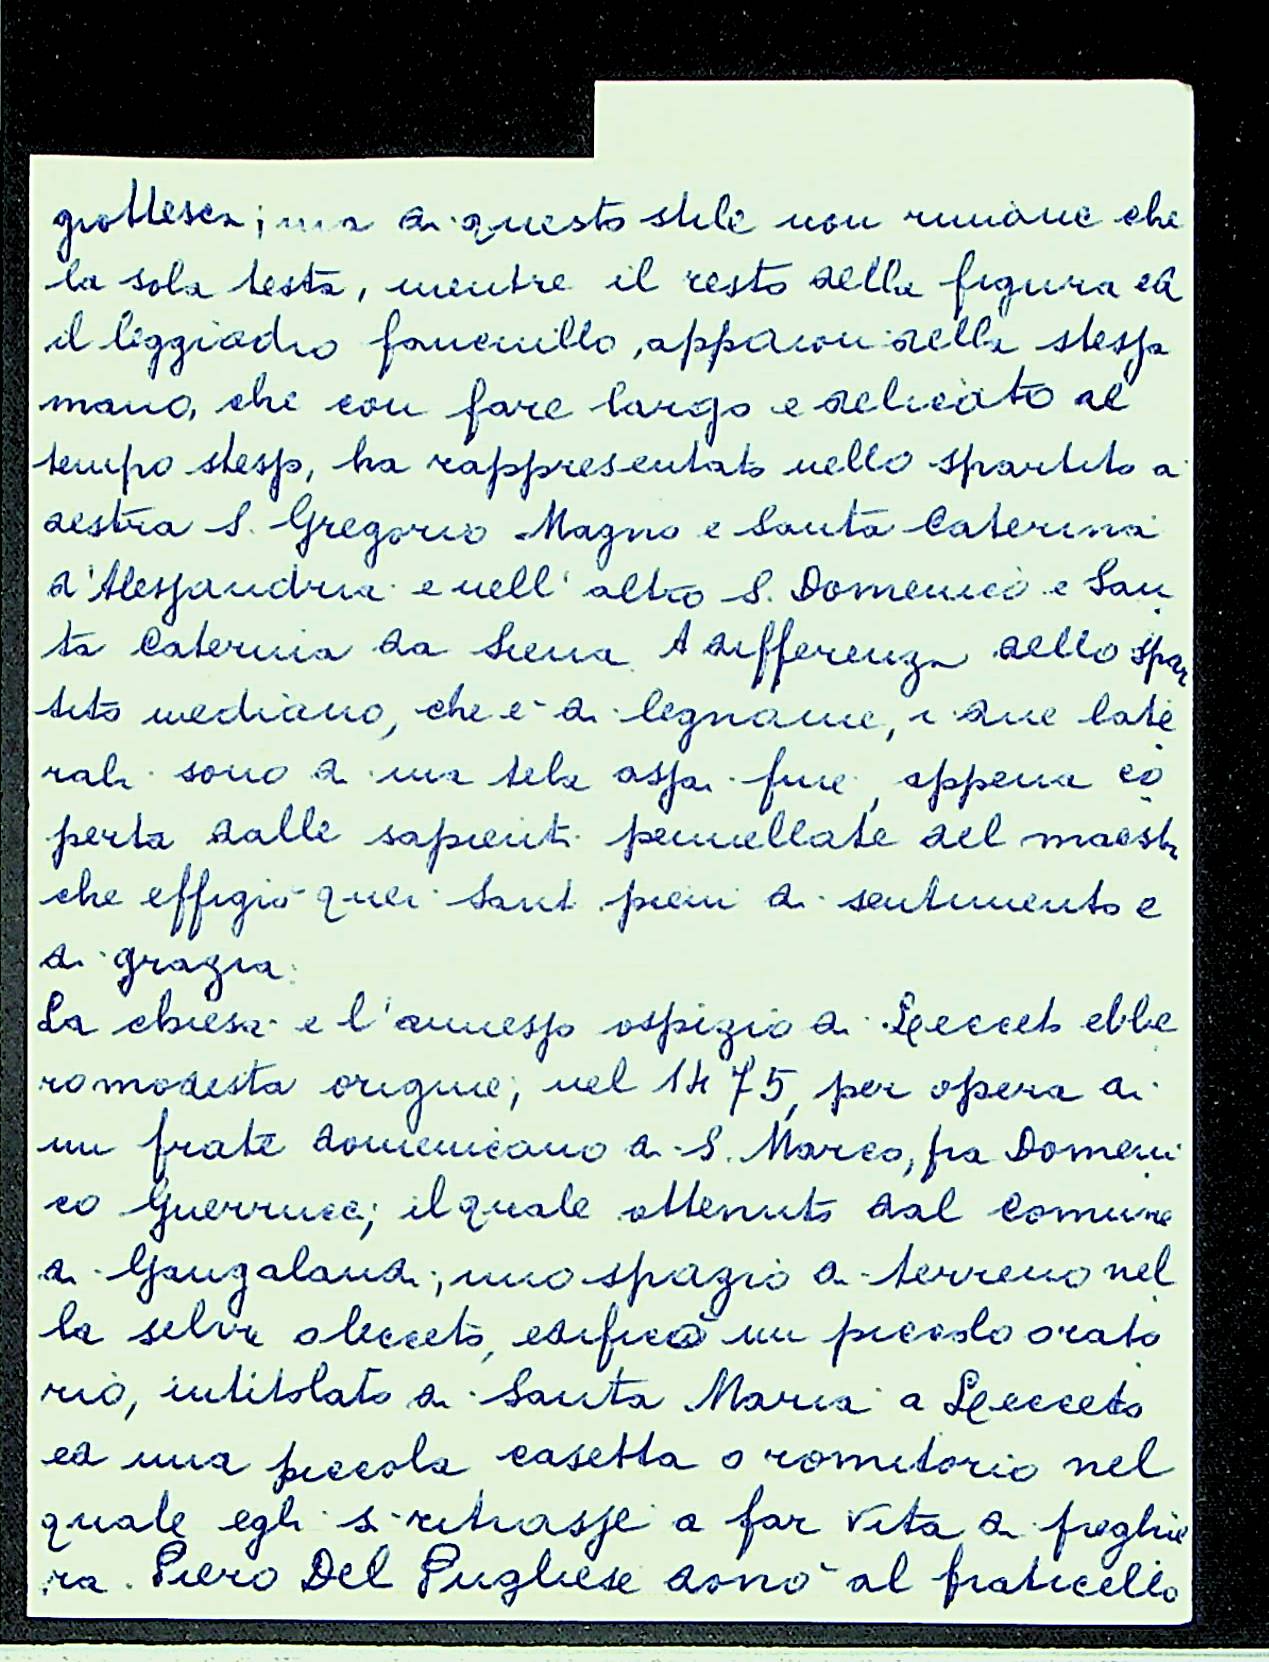 grottesca; ma di questo stile non rimane che
la sola testa, mentre il resto della figura ed
il leggiadro fanciullo, appaion della stessa
mano, che con fare largo e delicato al
tempo stesso, ha rappresentato nello spartito a
destra S. Gregorio Magno e Santa Caterina
d'Alessandria e nell'altro S. Domenico e San
ta Caterina da Siena. A differenza dello spar
tito mediano, che è di legname, i due late
rali sono di una tela assai fine, appena co
perta dalle sapienti pennellate del maestro
che effigiò quei Santi pieni di sentimento e
di grazia.
La chiesa e l'annesso ospizio di Lecceto ebbe
ro modesta origine, nel 1475, per opera di
un frate domenicano di S. Marco, fra Domeni
co Guerrucci; il quale ottenuto dal Comune
di Gangalandi, uno spazio di terreno nel
la selva o lecceto, edificò un piccolo orato
rio, intitolato di Santa Maria a Lecceto
ed una piccola casetta o romitorio nel
quale egli si ritrasse a far vita di preghie
ra. Piero Del Pugliese donò al fraticello